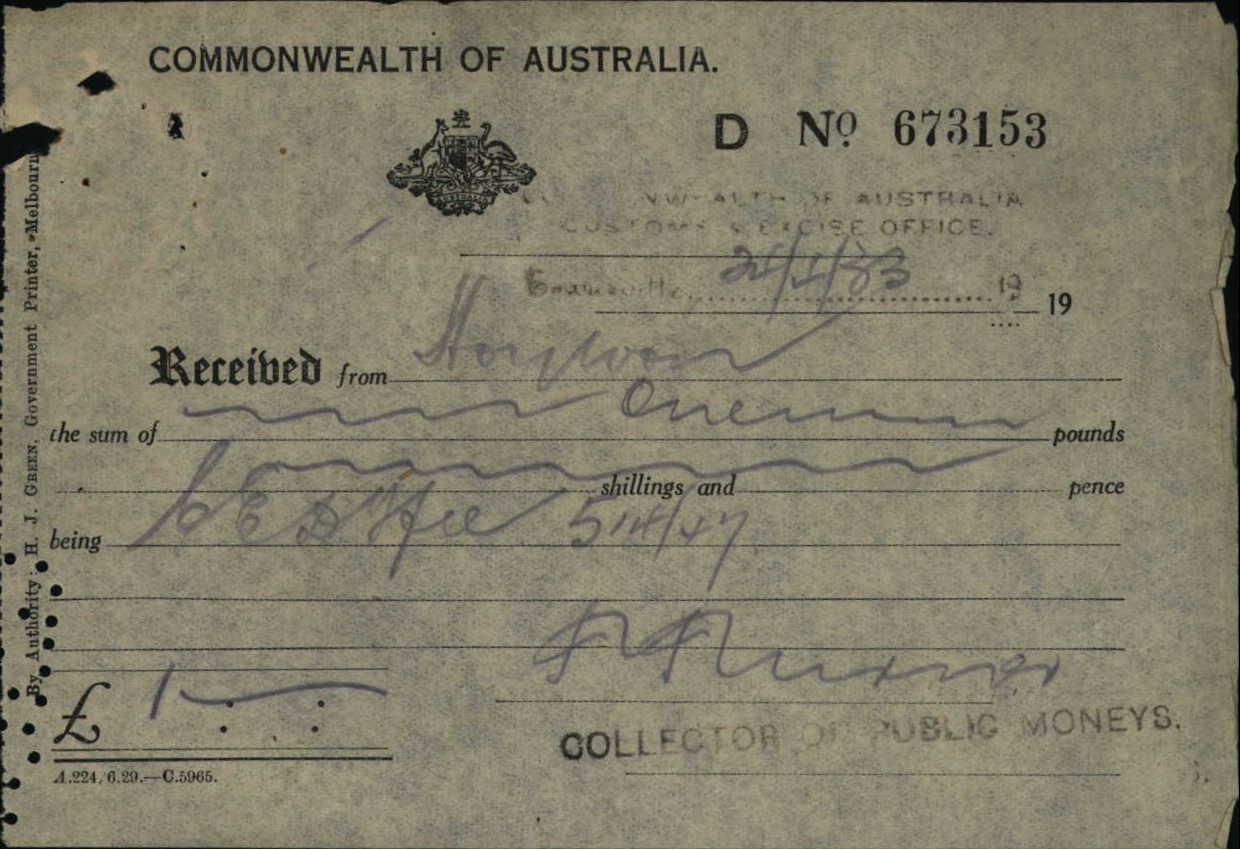 COMMONWEALTH OF AUSTRALIA.
D Nº 673153
AUSTRALIA
NWEALTH OF AUSTRALIA
CUSTOMS & EXCISE OFFICE.
19
19
Received from
the sum of One pounds
shillings and pence
being CEDT fee 5114/47
£ 1
COLLECTOR OF PUBLIC MONEYS.
A.224/6.29.—C.5965.
By Authority: H. J. GREEN, Government Printer, Melbourn